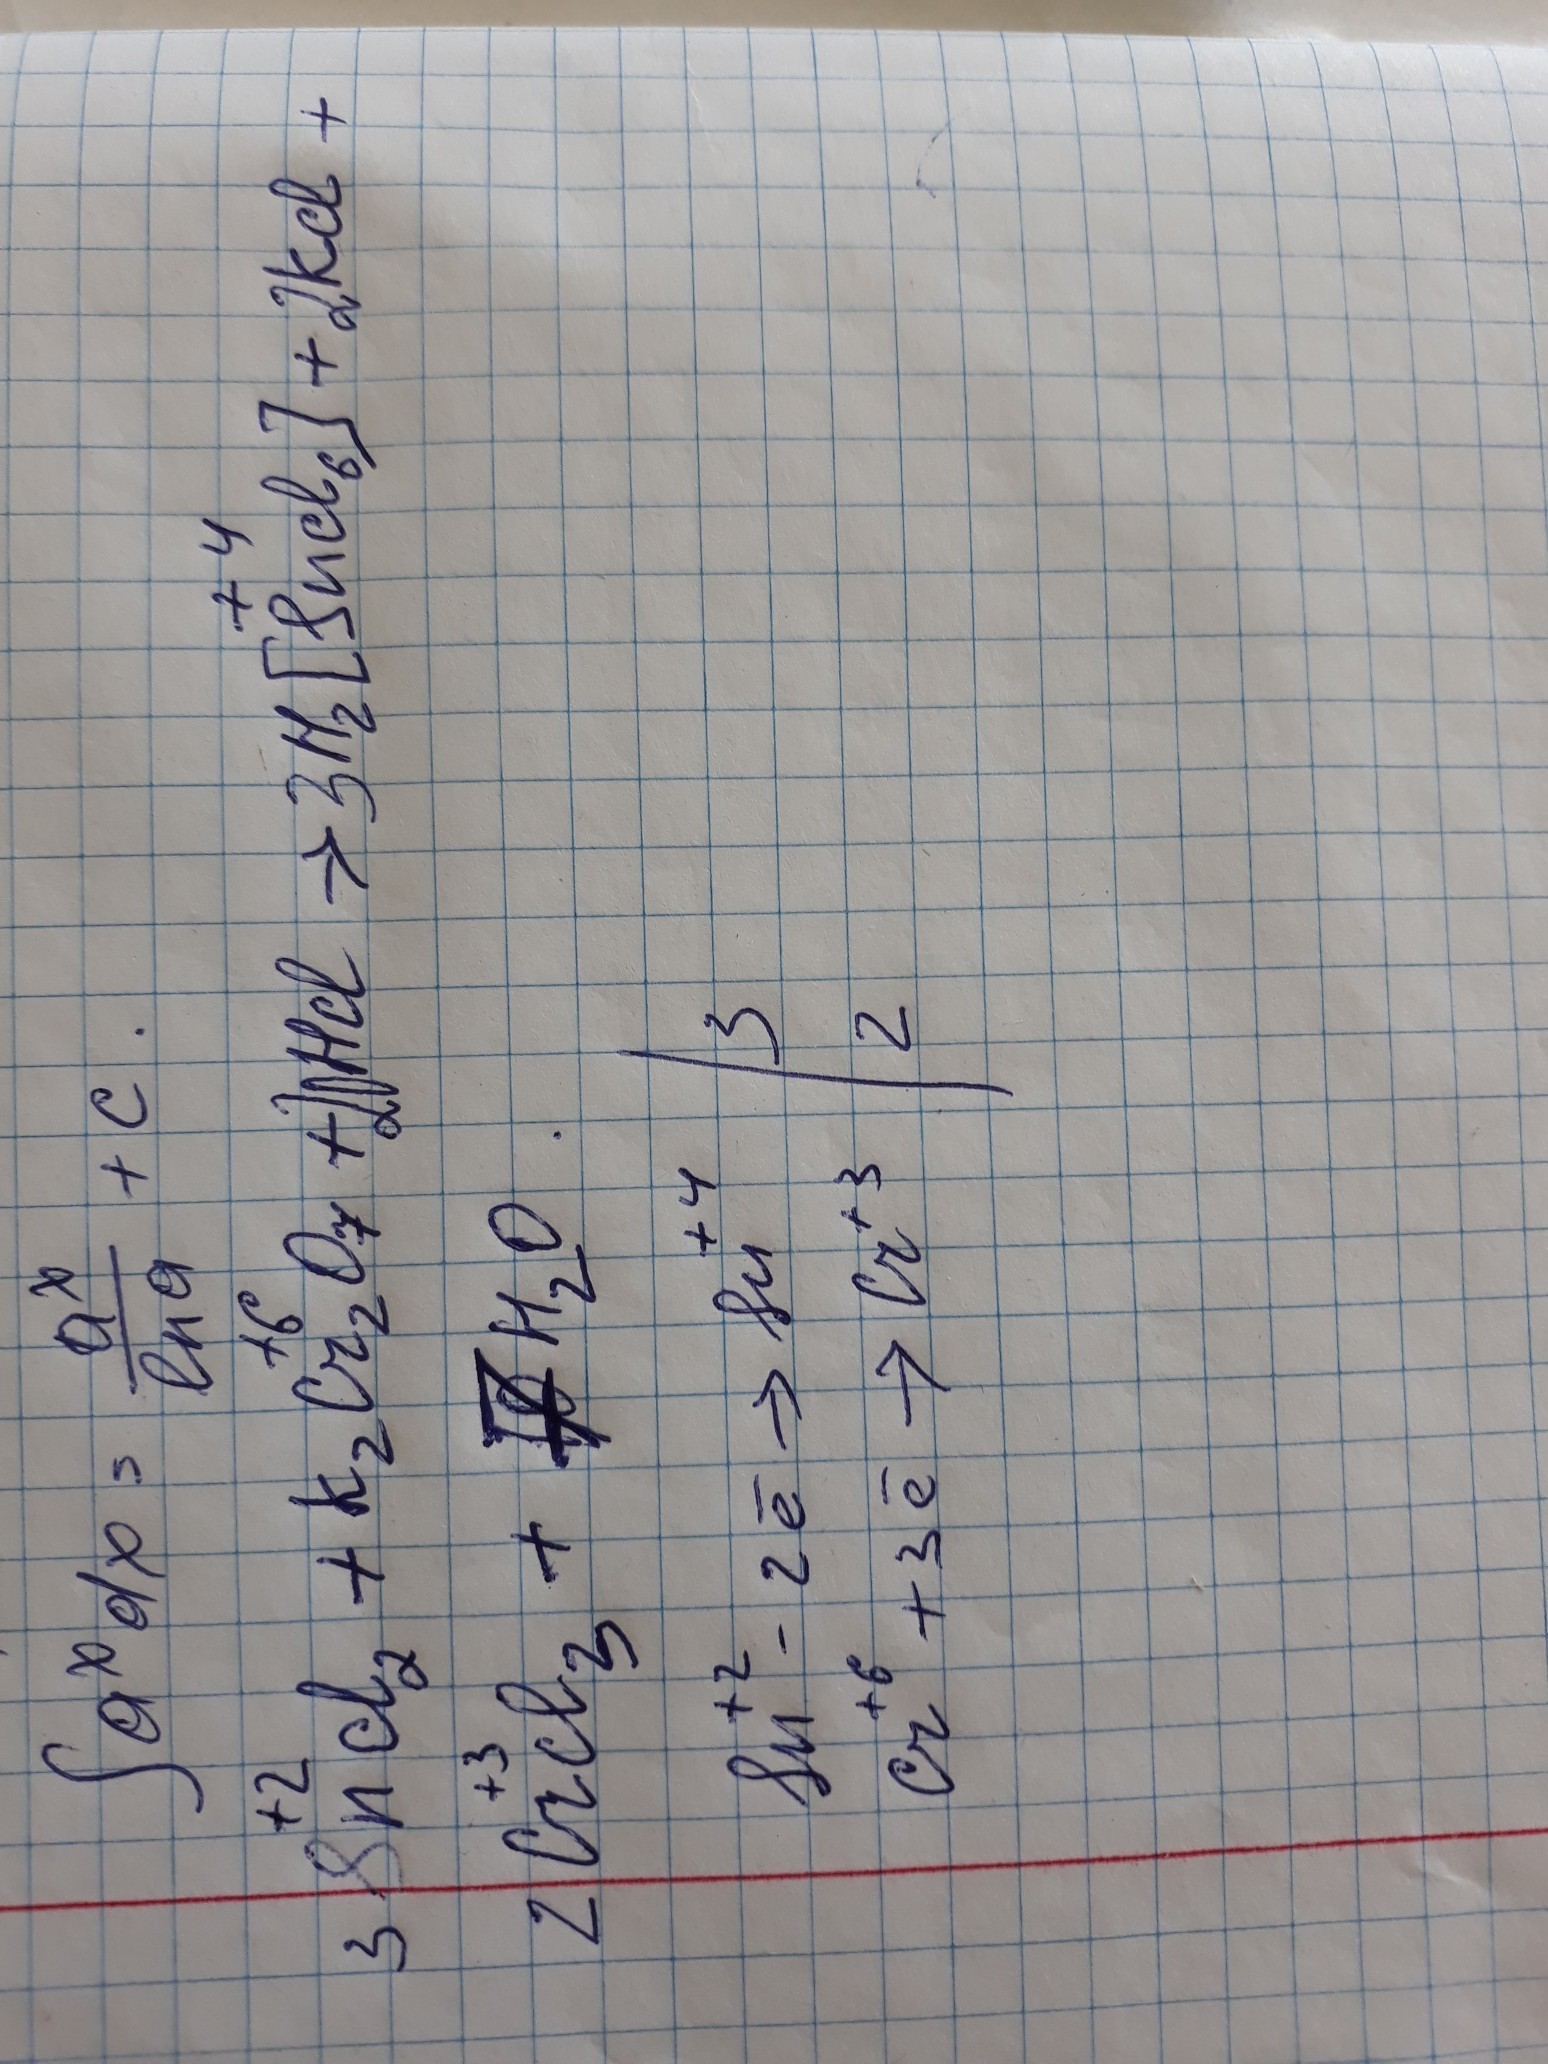 ∫aˣdx = aˣ/ln a + C.
3Sn⁺²Cl₂ + K₂Cr₂⁺⁶O₇ + HCl → 3H₂[Sn⁺⁴Cl₆] + 2KCl +
2Cr⁺³Cl₃ + H₂O
Sn⁺² - 2ē → Sn⁺⁴ | 3
Cr⁺⁶ + 3ē → Cr⁺³ | 2